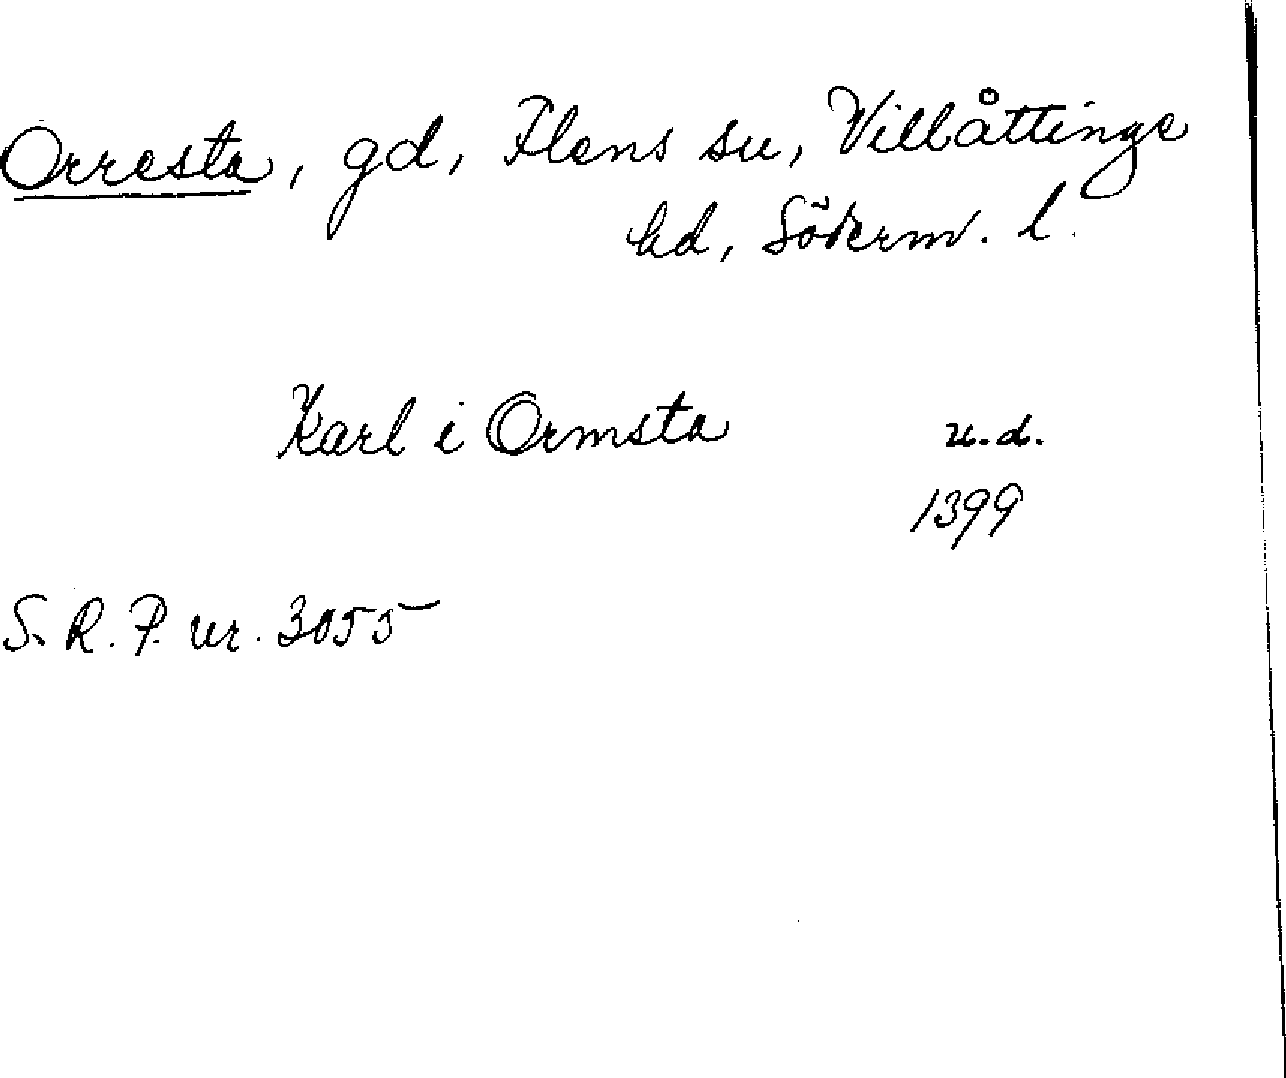 Orresta, gd, Flens sn, Villåttinge
hd, Söderm. l.
Karl i Ormsta u.d.
1399
S.R.P. nr. 3055